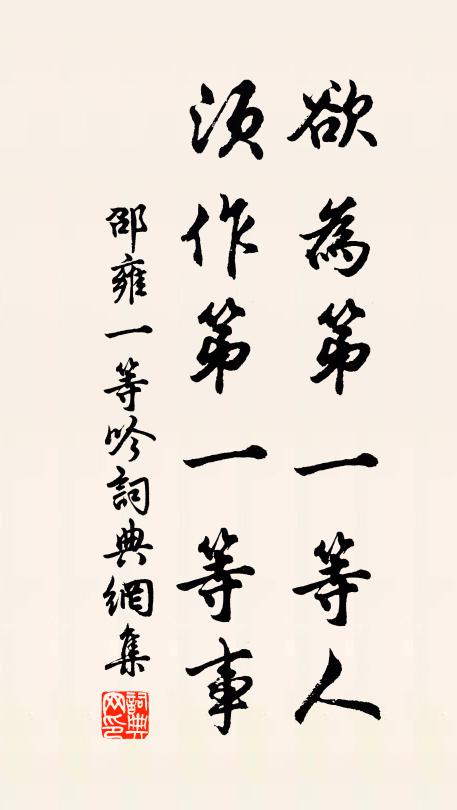 欲為第一等人
須作第一等事
邵雍一等吟詞典網集
詞典
网印